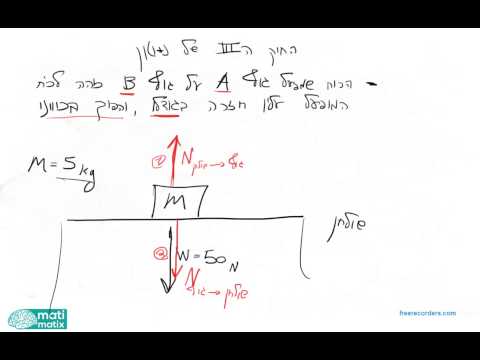 החוק ה III של ניוטון
הכוח שמפעיל גוף A על גוף B זהה לכח
המופעל עליו חזרה בגודל, והפוך בכיוונו
M = 5 kg
①
N שולחן → גוף
M
שולחן
②
W = 50 N
N גוף → שולחן
mati
matix
freerecorders.com